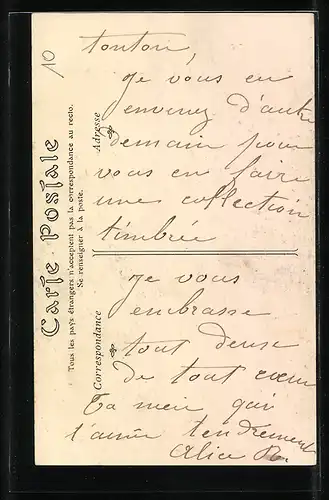 10
tonton,
je vous en
enverez d'autre
demain pour
vous en faire
une collection
timbrée
je vous
embrasse
tout deuse
de tout cœur
Ta qui
t'aime tendrement
Alice R.
Carte Postale
Tous les pays étrangers n'acceptent pas la correspondance au recto.
Se renseigner à la poste.
Correspondance
Adresse